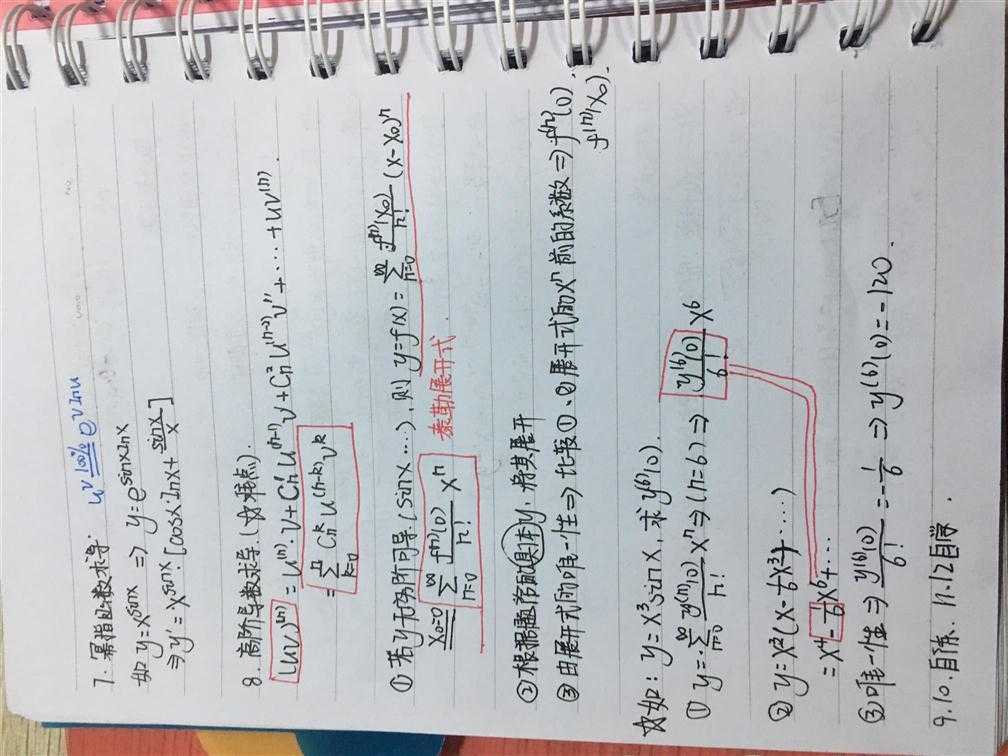 7. 幂指函数求导: u^v =100%= e^{v ln u}
如 y = x^{sinx} ⇒ y = e^{sinx lnx}
⇒ y' = x^{sinx}·[cosx·lnx + sinx/x]
8. 高阶导数求导. (☆难点).
(uv)^{(n)} = u^{(n)}·v + C_n^1 u^{(n-1)}v' + C_n^2 u^{(n-2)}v'' + ··· + uv^{(n)}
= ∑_{k=0}^{n} C_n^k u^{(n-k)} v^k
① 若y无穷阶可导 (sinx ...), 则 y = f(x) = ∑_{n=0}^{∞} f^{(n)}(x_0)/n! (x-x_0)^n
x_0=0 ∑_{n=0}^{∞} f^{(n)}(0)/n! x^n 泰勒展开式
② 根据题给的具体y, 将其展开
③ 由展开式的唯一性 ⇒ 比较①、②展开式的x^n前的系数 ⇒ f^{(n)}(0).
f^{(n)}(x_0)
☆如: y = x^3 sinx, 求y^{(6)}(0).
① y = ∑_{n=0}^{∞} y^{(n)}(0)/n! x^n ⇒ (n=6) ⇒ y^{(6)}(0)/6! x^6
② y = x^3(x - 1/6 x^3 + ·····)
= x^4 - 1/6 x^6 + ...
③ 唯一性 ⇒ y^{(6)}(0)/6! = -1/6 ⇒ y^{(6)}(0) = -120.
9. 10. 自练. 11. 12自学